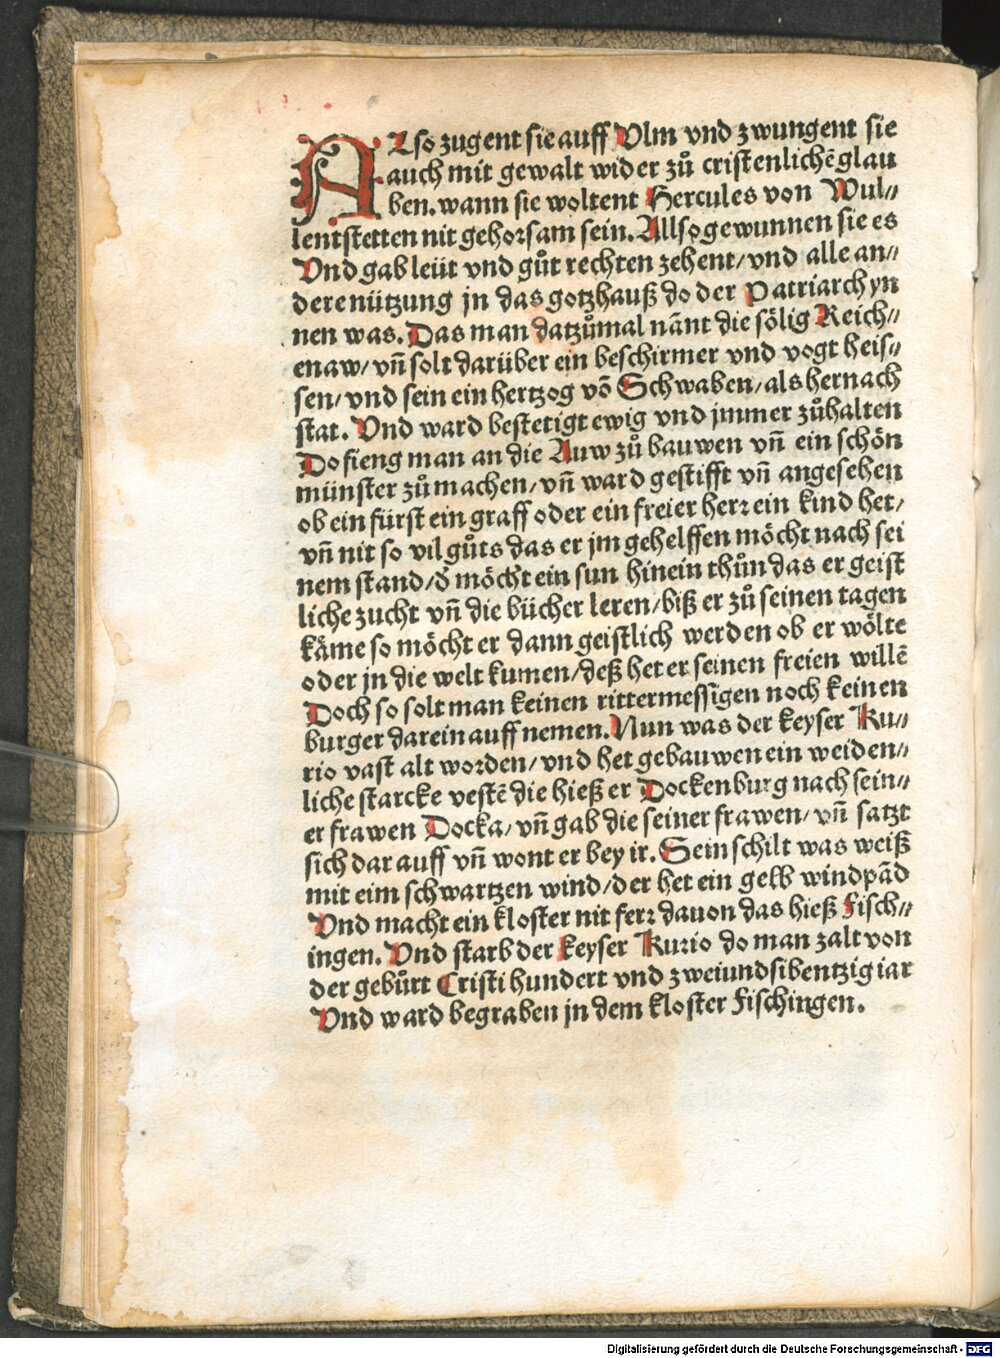 ALso zugent sie auff Vlm vnd zwungent sie
auch mit gewalt wider zů cristenlichē glau
ben. wann sie woltent Hercules von Wul⸗
lentstetten nit gehorsam sein. Allso gewunnen sie es
Vnd gab leüt vnd gůt rechten zehent/ vnd alle an⸗
dere nützung jn das gotzhauß do der Patriarch yn
nen was. Das man datzůmal nant die sölig Reich⸗
enaw/ vñ solt darüber ein beschirmer vnd vogt heis⸗
sen/ vnd sein ein hertzog võ Schwaben/ als hernach
stat. Vnd ward bestetigt ewig vnd jmmer zůhalten
Do fieng man an die Auw zů bauwen vñ ein schön
münster zů machen/ vñ ward gestifft vñ angesehen
ob ein fürst ein graff oder ein freier herr ein kind het/
vñ nit so vil gůts das er jm gehelffen möcht nach sei
nem stand/ d̄ möcht ein sun hinein thůn das er geist
liche zucht vñ die bücher leren/ biß er zů seinen tagen
käme so möcht er dann geistlich werden ob er wölte
oder jn die welt kumen/ deß het er seinen freien willē
Doch so solt man keinen rittermessigen noch keinen
burger darein auff nemen. Nun was der keyser Ku⸗
rio vast alt worden/ vnd het gebauwen ein weiden⸗
liche starcke vestē die hieß er Dockenburg nach sein⸗
er frawen Docka/ vñ gab die seiner frawen/ vñ satzt
sich dar auff vñ wont er bey ir. Sein schilt was weiß
mit eim schwartzen wind/ der het ein gelb windpād
Vnd macht ein kloster nit ferr dauon das hieß Fisch⸗
ingen. Vnd starb der keyser Kurio do man zalt von
der gebůrt Cristi hundert vnd zweiundsibentzig iar
Vnd ward begraben jn dem kloster Fischingen.
Digitalisierung gefördert durch die Deutsche Forschungsgemeinschaft - DFG